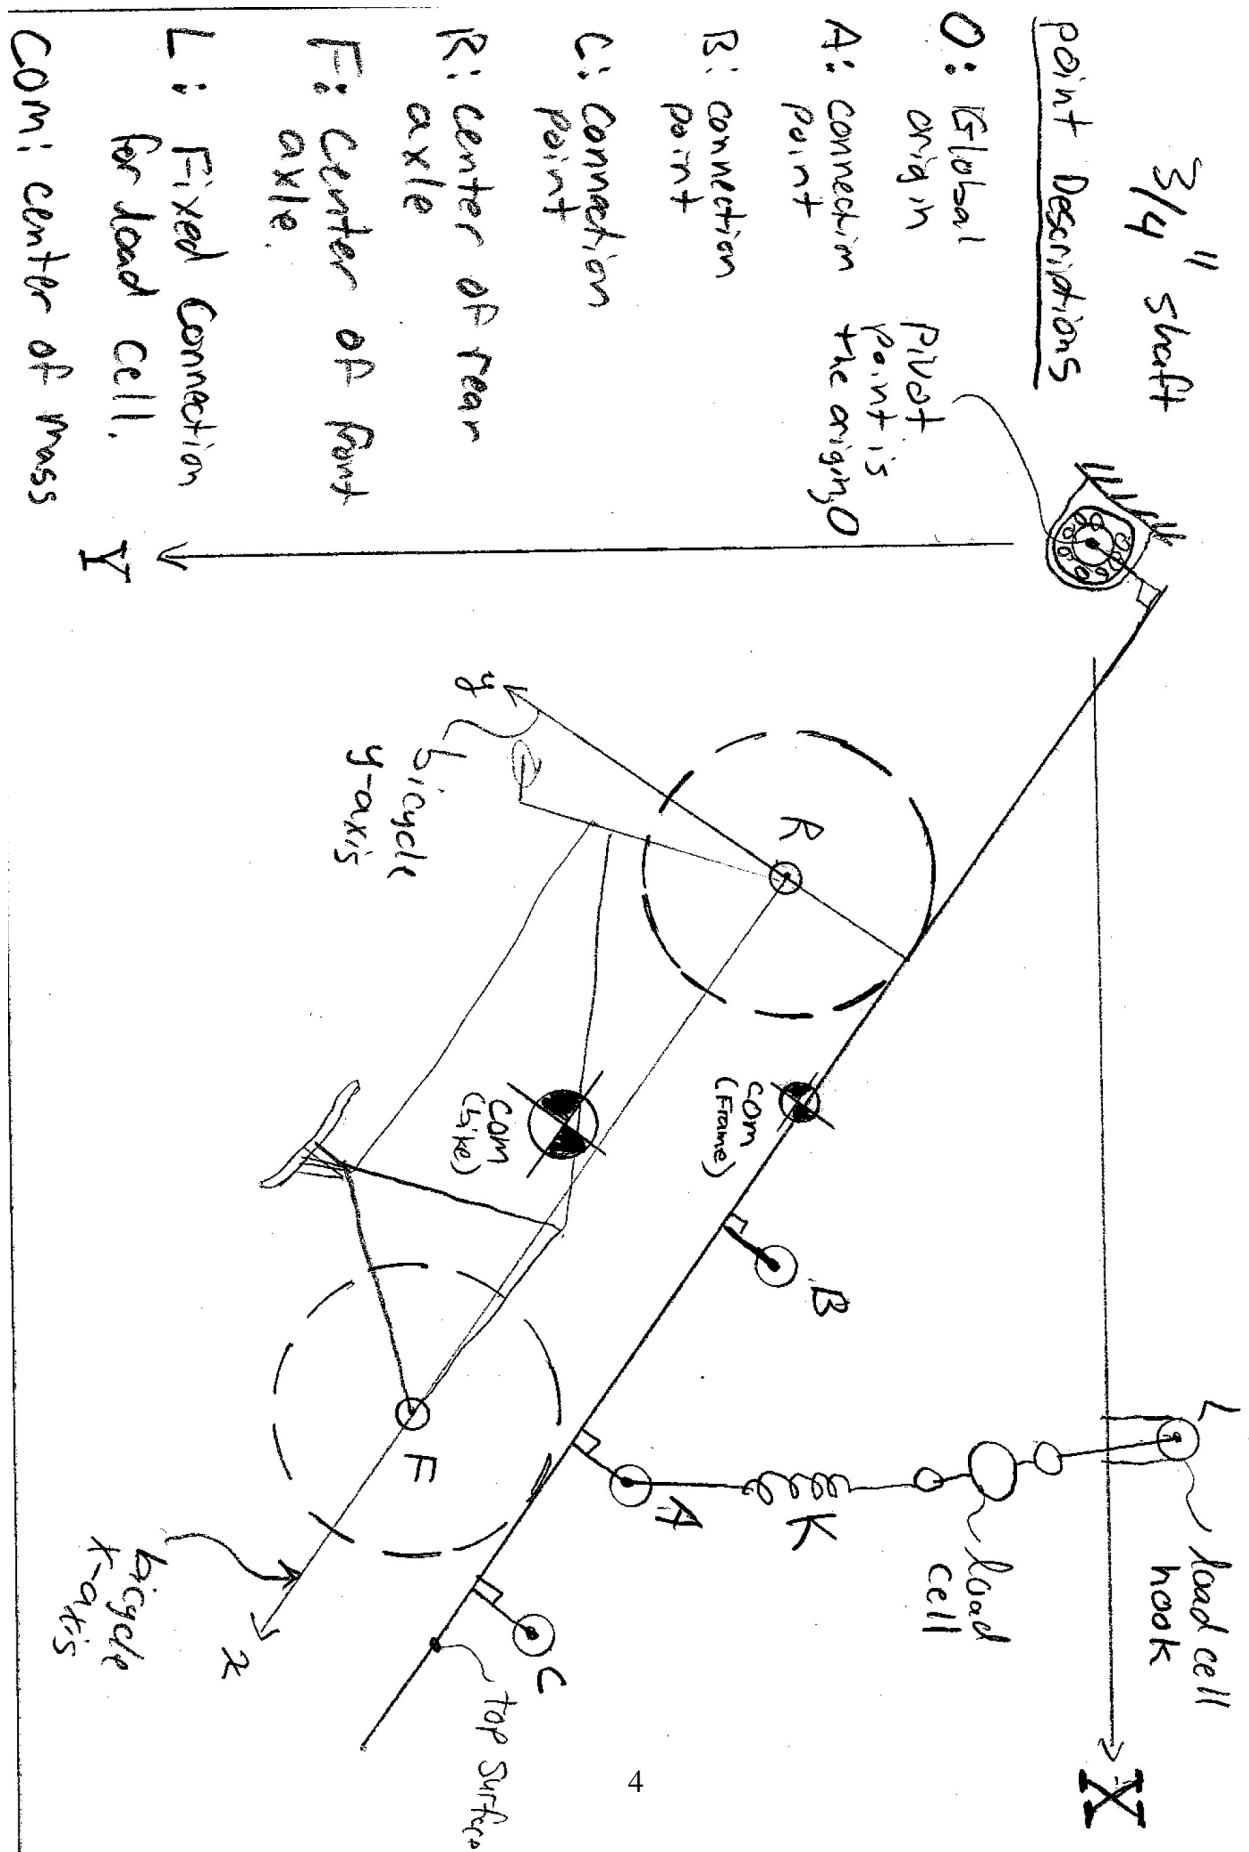 3/4" shaft
point Descriptions
O: Global
origin
A: connection
point
B: connection
point
C: Connection
point
R: center of rear
axle
F: Center of front
axle.
L: Fixed Connection
for load cell.
COM: center of mass
Pivot
point is
the origin, O
Y
y
bicycle
y-axis
R
COM
(Frame)
COM
(bike)
B
L
load cell
hook
load
cell
K
A
F
C
top surface
bicycle
x-axis
x
X
4